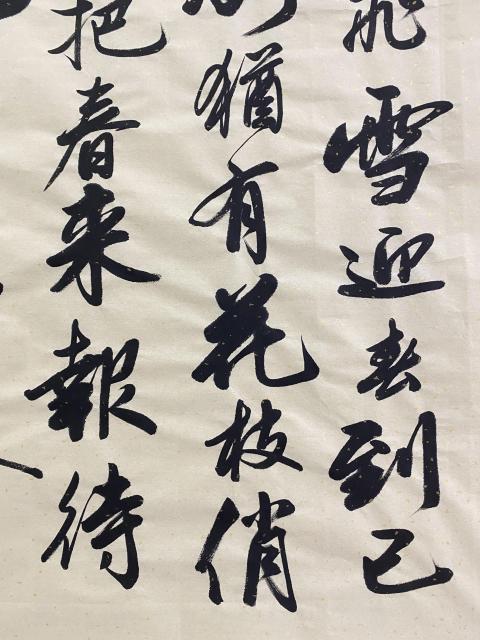 飛雪迎春到已
猶有花枝俏
把春来報待